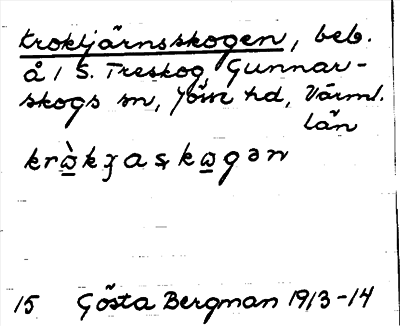 Kroktjärnsskogen, beb.
å / S. Treskog, Gunnar-
skogs sn, Jösse hd, Värml.
län
15 Gösta Bergman 1913-14